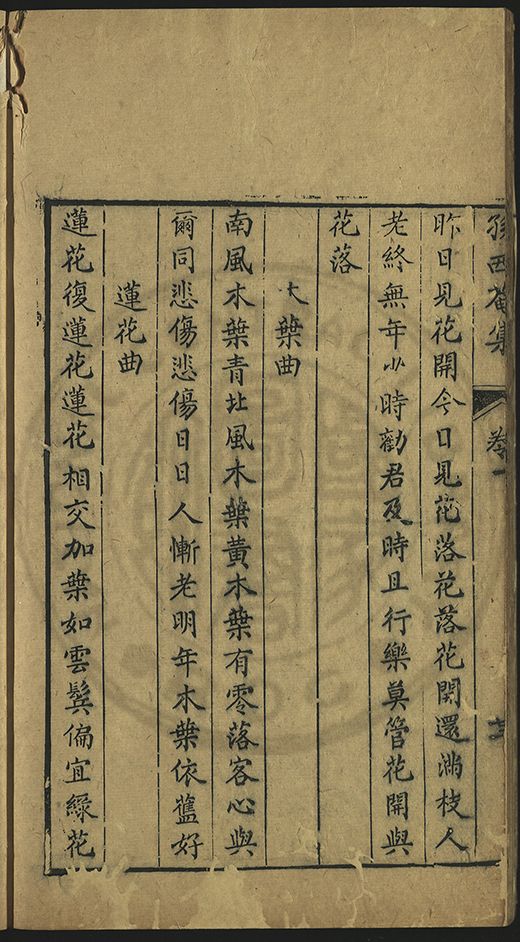 孫西菴集 卷一
昨日見花開今日見花落花落花開還滿枝人
老終無年少時勸君及時且行樂莫管花開與
花落
木葉曲
南風木葉青北風木葉黃木葉有零落客心與
爾同悲傷悲傷日日人慚老明年木葉依舊好
蓮花曲
蓮花復蓮花蓮花相交加葉如雲鬂偏宜綠花